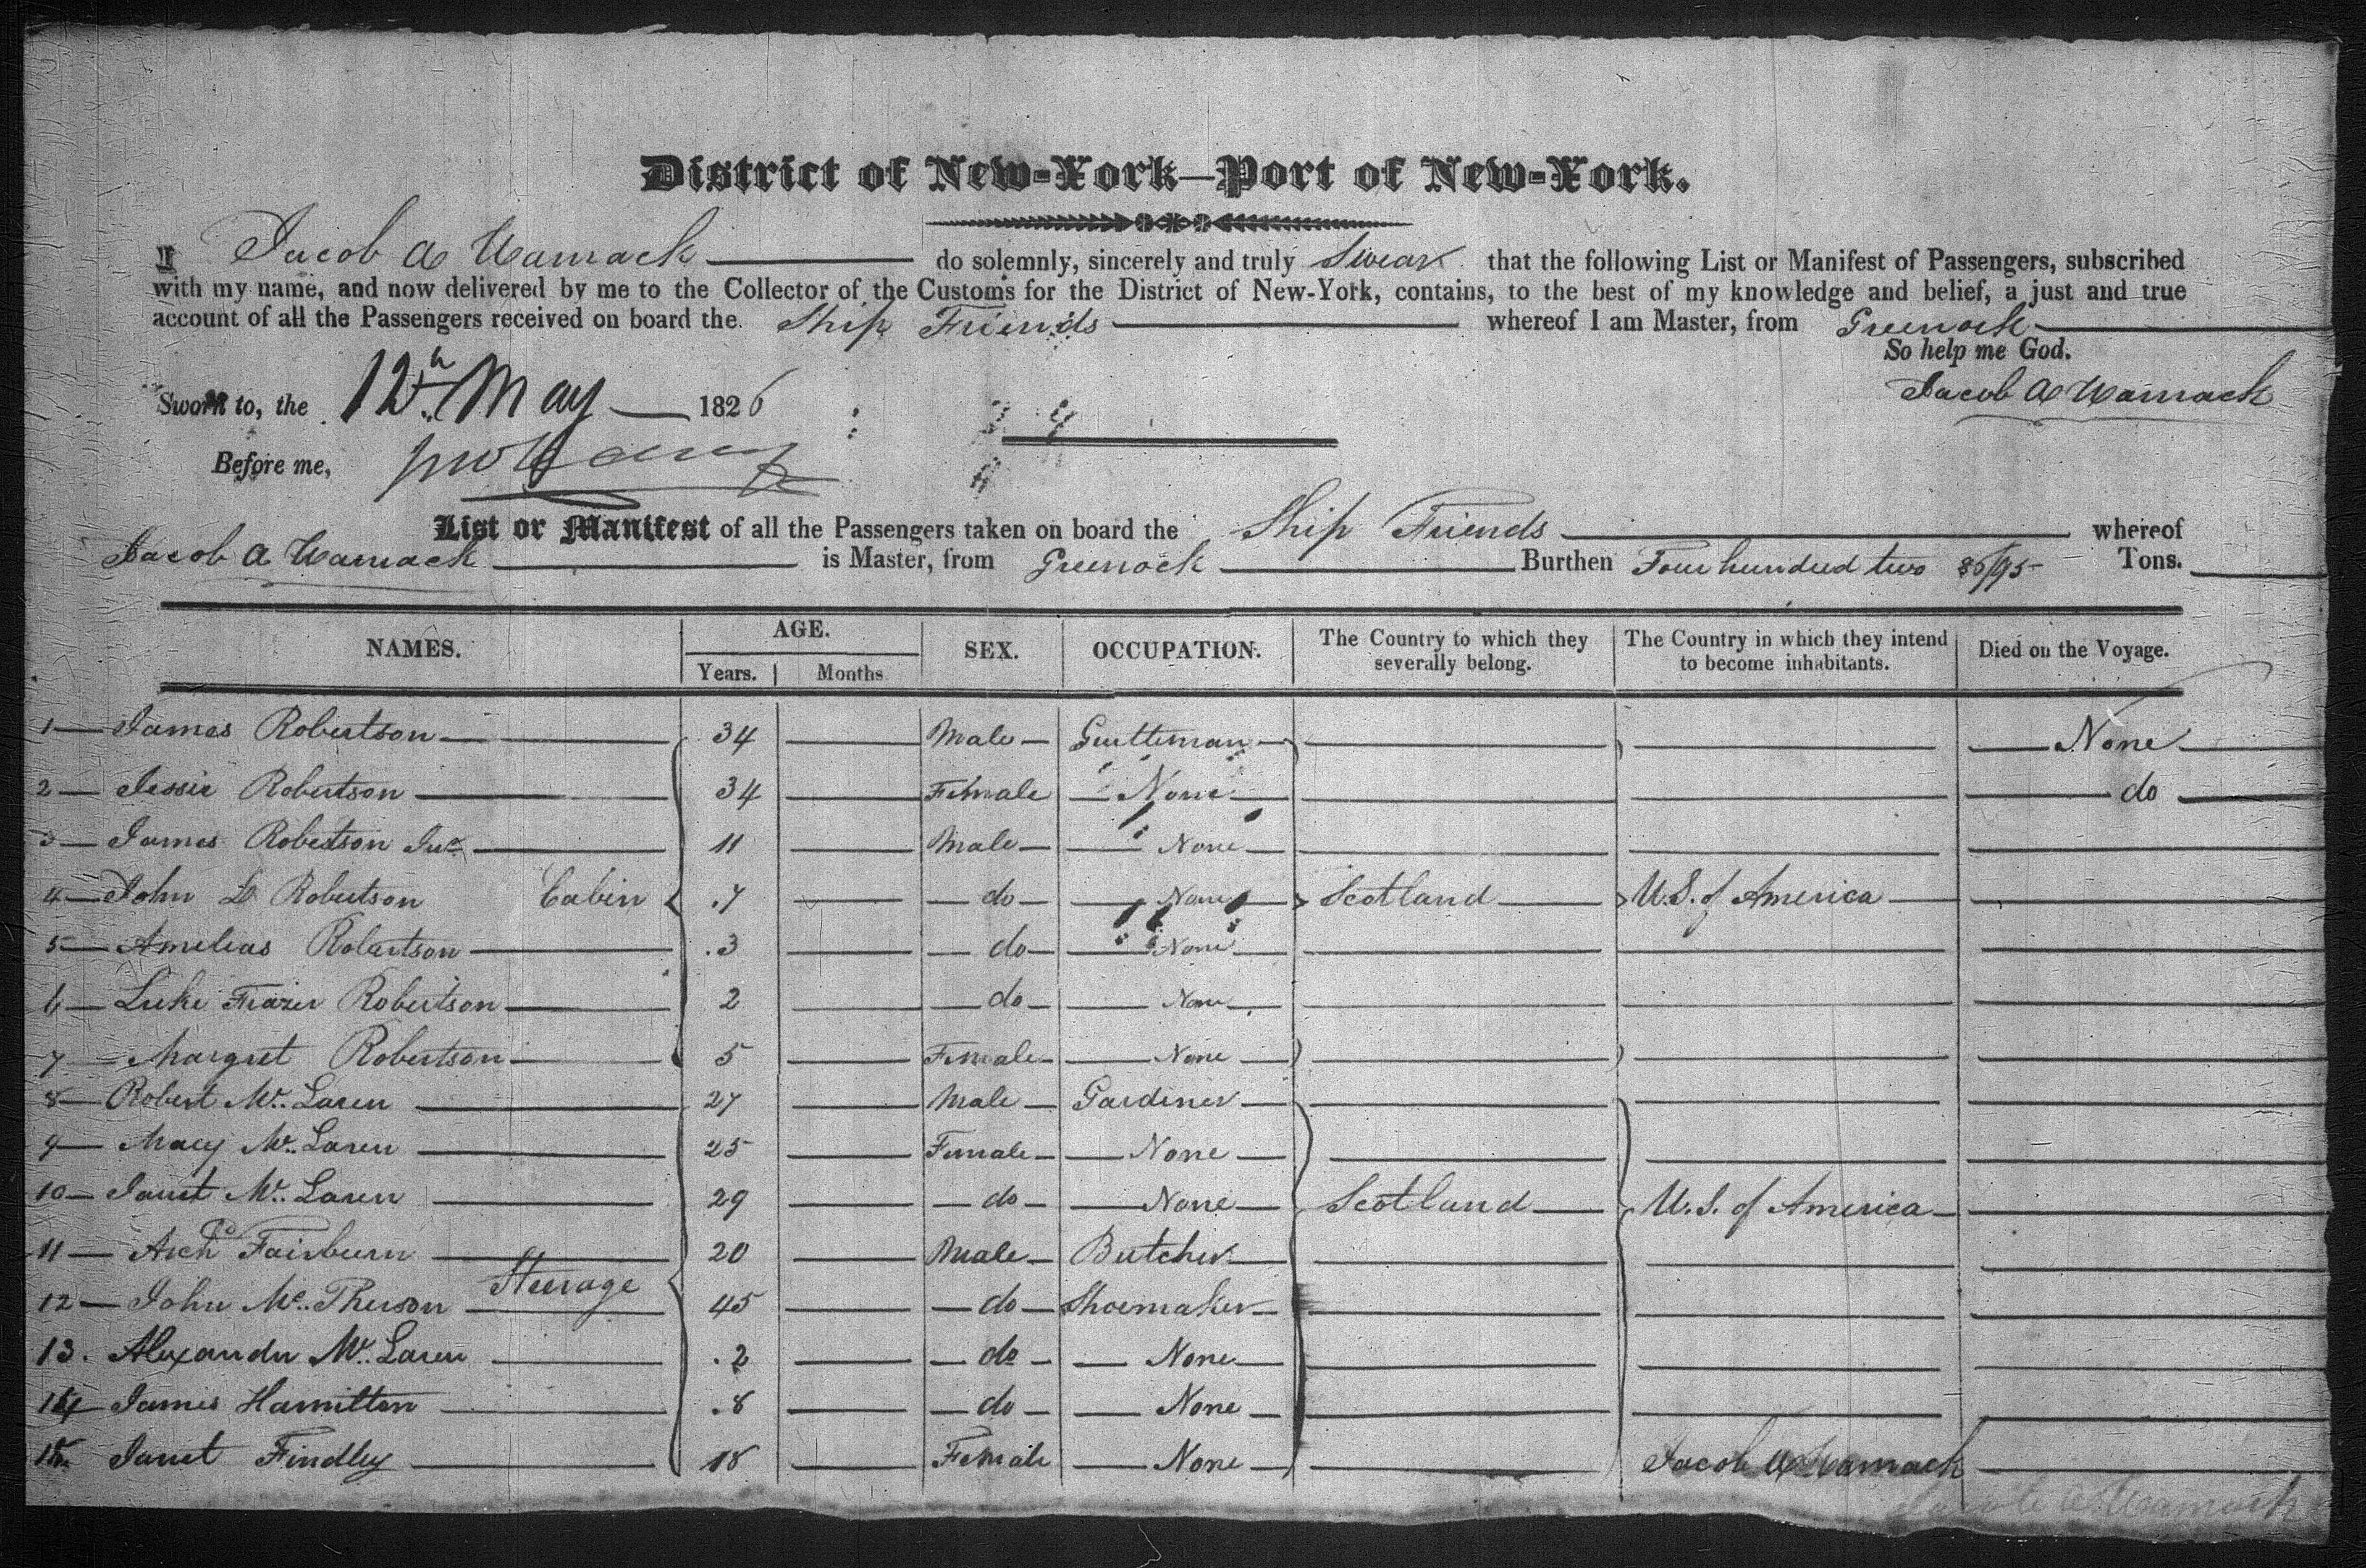 District of New-York—Port of New-York.
I Jacob A Wamack do solemnly, sincerely and truly Swear that the following List or Manifest of Passengers, subscribed
with my name, and now delivered by me to the Collector of the Customs for the District of New-York, contains, to the best of my knowledge and belief, a just and true
account of all the Passengers received on board the Ship Friends whereof I am Master, from Greenock
So help me God.
Sworn to, the 12th May 1826
Jacob A Wamack
Before me,
List or Manifest of all the Passengers taken on board the Ship Friends whereof
Jacob A Wamack is Master, from Greenock Burthen Four hundred two 86/95 Tons.
NAMES. AGE. SEX. OCCUPATION. The Country to which they severally belong. The Country in which they intend to become inhabitants. Died on the Voyage.
Years. Months
1 — James Robertson 34 Male Gentleman None
2 — Jessie Robertson 34 Female None do
3 — James Robertson Junr 11 Male None
4 — John D Robertson Cabin 7 do None Scotland U.S. of America
5 — Amelias Robertson 3 do None
6 — Luke Frazer Robertson 2 do None
7 — Margret Robertson 5 Female None
8 — Robert Mc Laren 27 Male Gardiner
9 — Macy Mc Laren 25 Female None
10 — Janet Mc Laren 29 do None Scotland U.S. of America
11 — Archd Fairburn 20 Male Butcher
12 — John Mc Pherson Steerage 45 do Shoemaker
13. Alexander Mc Laren 2 do None
14 James Hamilton 8 do None
15. Janet Findley 18 Female None Jacob A Wamack
Jacob A Wamack